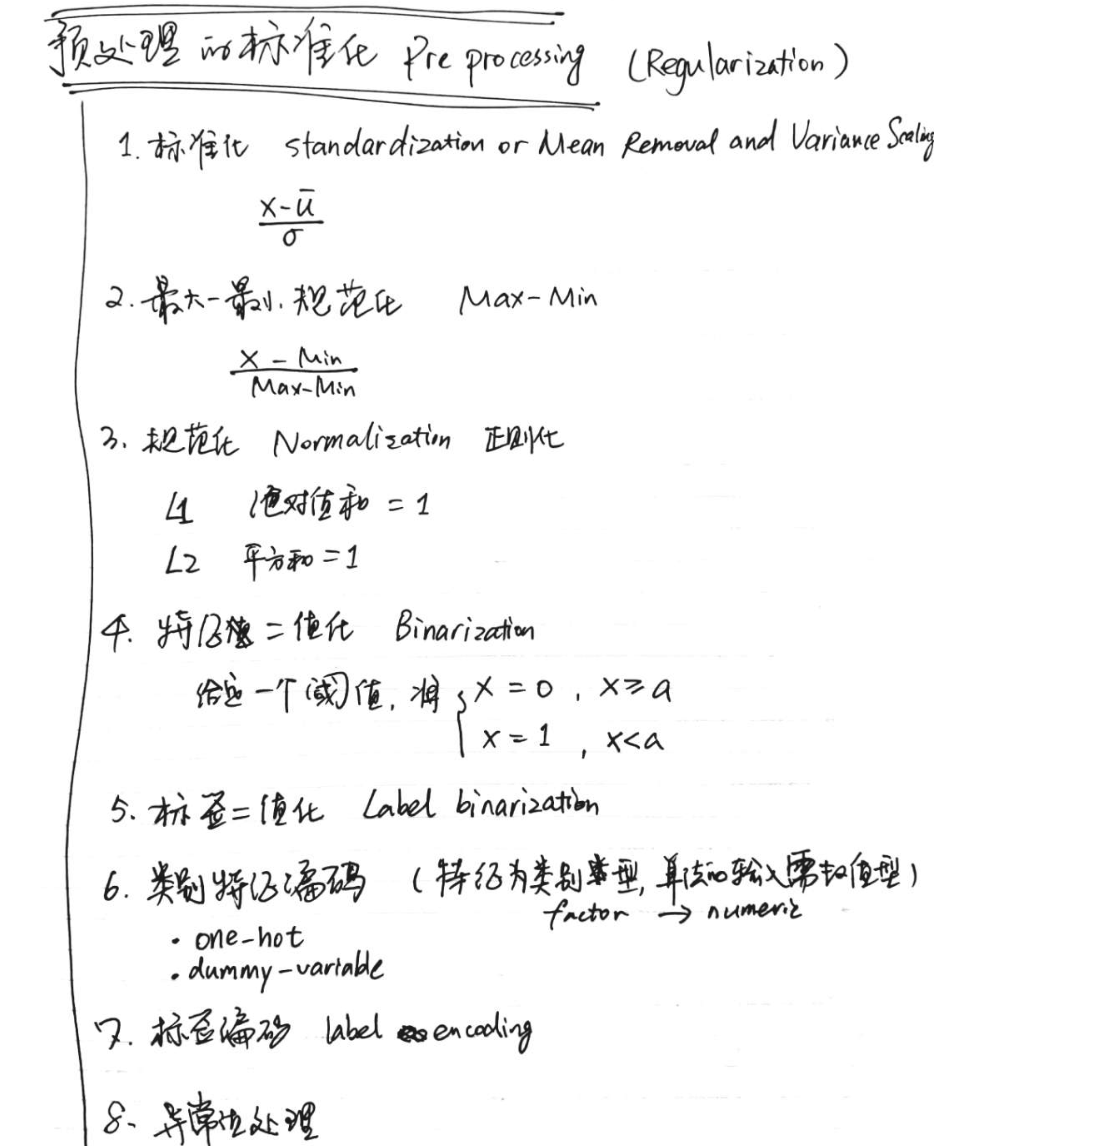 预处理的标准化 Pre processing (Regularization)
1. 标准化 standardization or Mean Removal and Variance Scaling
x-ū
σ
2. 最大-最小规范化 Max-Min
x - Min
Max-Min
3. 规范化 Normalization 正则化
L1 绝对值和 = 1
L2 平方和 = 1
4. 特征二值化 Binarization
给定一个阈值, 将 { x = 0 , x ≥ a
x = 1 , x < a
5. 标签二值化 Label binarization
6. 类别特征编码 (特征为类别类型, 算法的输入需数值型)
factor → numeric
· one-hot
· dummy-variable
7. 标签编码 label encoding
8. 异常值处理